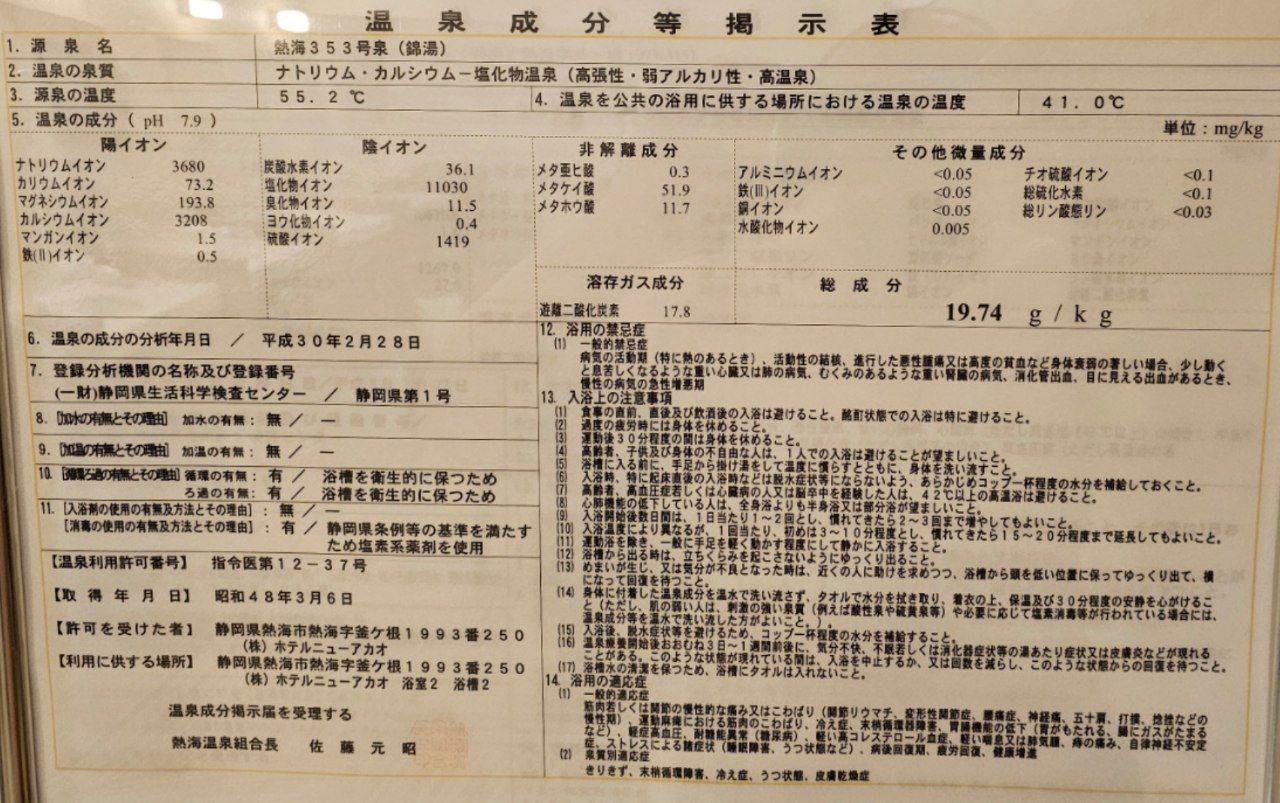 温泉成分等掲示表
1. 源泉名 熱海353号泉（錦湯）
2. 温泉の泉質 ナトリウム・カルシウム－塩化物温泉（高張性・弱アルカリ性・高温泉）
3. 源泉の温度 55.2℃ 4. 温泉を公共の浴用に供する場所における温泉の温度 41.0℃
5. 温泉の成分（ pH 7.9 ）
単位：mg/kg
陽イオン
ナトリウムイオン 3680
カリウムイオン 73.2
マグネシウムイオン 193.8
カルシウムイオン 3208
マンガンイオン 1.5
鉄(Ⅱ)イオン 0.5
陰イオン
炭酸水素イオン 36.1
塩化物イオン 11030
臭化物イオン 11.5
ヨウ化物イオン 0.4
硫酸イオン 1419
非解離成分
メタ亜ヒ酸 0.3
メタケイ酸 51.9
メタホウ酸 11.7
その他微量成分
アルミニウムイオン <0.05 チオ硫酸イオン <0.1
鉄(Ⅲ)イオン <0.05 総硫化水素 <0.1
銅イオン <0.05 総リン酸態リン <0.03
水酸化物イオン 0.005
溶存ガス成分
遊離二酸化炭素 17.8
総成分
19.74 g/kg
6. 温泉の成分の分析年月日 ／ 平成30年2月28日
7. 登録分析機関の名称及び登録番号
(一財)静岡県生活科学検査センター ／ 静岡県第1号
8. [加水の有無とその理由] 加水の有無： 無 ／ －
9. [加温の有無とその理由] 加温の有無： 無 ／ －
10. [循環ろ過の有無とその理由] 循環の有無： 有 ／ 浴槽を衛生的に保つため
ろ過の有無： 有 ／ 浴槽を衛生的に保つため
11. [入浴剤の使用の有無及方法とその理由]： 無／－
[消毒の使用の有無及方法とその理由]： 有／ 静岡県条例等の基準を満たす
ため塩素系薬剤を使用
【温泉利用許可番号】 指令医第12－37号
【取得年月日】 昭和48年3月6日
【許可を受けた者】 静岡県熱海市熱海字釜ケ根1993番250
（株）ホテルニューアカオ
【利用に供する場所】 静岡県熱海市熱海字釜ケ根1993番250
（株）ホテルニューアカオ 浴室2 浴槽2
温泉成分掲示届を受理する
熱海温泉組合長 佐藤元昭
12. 浴用の禁忌症
(1) 一般的禁忌症
病気の活動期（特に熱のあるとき）、活動性の結核、進行した悪性腫瘍又は高度の貧血など身体衰弱の著しい場合、少し動く
と息苦しくなるような重い心臓又は肺の病気、むくみのあるような重い腎臓の病気、消化管出血、目に見える出血があるとき、
慢性の病気の急性増悪期
13. 入浴上の注意事項
(1) 食事の直前、直後及び飲酒後の入浴は避けること。酩酊状態での入浴は特に避けること。
(2) 過度の疲労時には身体を休めること。
(3) 運動後30分程度の間は身体を休めること。
(4) 高齢者、子供及び身体の不自由な人は、1人での入浴は避けることが望ましいこと。
(5) 浴槽に入る前に、手足から掛け湯をして温度に慣らすとともに、身体を洗い流すこと。
(6) 入浴時、特に起床直後の入浴時などは脱水症状等にならないよう、あらかじめコップ一杯程度の水分を補給しておくこと。
(7) 高齢者、高血圧症若しくは心臓病の人又は脳卒中を経験した人は、42℃以上の高温浴は避けること。
(8) 心肺機能の低下している人は、全身浴よりも半身浴又は部分浴が望ましいこと。
(9) 入浴開始後数日間は、1日当たり1～2回とし、慣れてきたら2～3回まで増やしてもよいこと。
(10) 入浴温度により異なるが、1回当たり、初めは3～10分程度とし、慣れてきたら15～20分程度まで延長してもよいこと。
(11) 運動浴を除き、一般に手足を軽く動かす程度にして静かに入浴すること。
(12) 浴槽から出る時は、立ちくらみを起こさないようにゆっくり出ること。
(13) めまいが生じ、又は気分が不良となった時は、近くの人に助けを求めつつ、浴槽から頭を低い位置に保ってゆっくり出て、横
になって回復を待つこと。
(14) 身体に付着した温泉成分を温水で洗い流さず、タオルで水分を拭き取り、着衣の上、保温及び30分程度の安静を心がけるこ
と（ただし、肌の弱い人は、刺激の強い泉質（例えば酸性泉や硫黄泉等）や必要に応じて塩素消毒等が行われている場合には、
温泉成分等を温水で洗い流した方がよいこと。）。
(15) 入浴後、脱水症状等を避けるため、コップ一杯程度の水分を補給すること。
(16) 温泉療養開始後おおむね3日～1週間前後に、気分不快、不眠若しくは消化器症状等の湯あたり症状又は皮膚炎などが現れる
ことがある。このような状態が現れている間は、入浴を中止するか、又は回数を減らし、このような状態からの回復を待つこと。
(17) 浴槽水の清潔を保つため、浴槽にタオルは入れないこと。
14. 浴用の適応症
(1) 一般的適応症
筋肉若しくは関節の慢性的な痛み又はこわばり（関節リウマチ、変形性関節症、腰痛症、神経痛、五十肩、打撲、捻挫などの
慢性期）、運動麻痺における筋肉のこわばり、冷え症、末梢循環障害、胃腸機能の低下（胃がもたれる、腸にガスがたまる
など）、軽症高血圧、耐糖能異常（糖尿病）、軽い高コレステロール血症、軽い喘息又は肺気腫、痔の痛み、自律神経不安定
症、ストレスによる諸症状（睡眠障害、うつ状態など）、病後回復期、疲労回復、健康増進
(2) 泉質別適応症
きりきず、末梢循環障害、冷え症、うつ状態、皮膚乾燥症